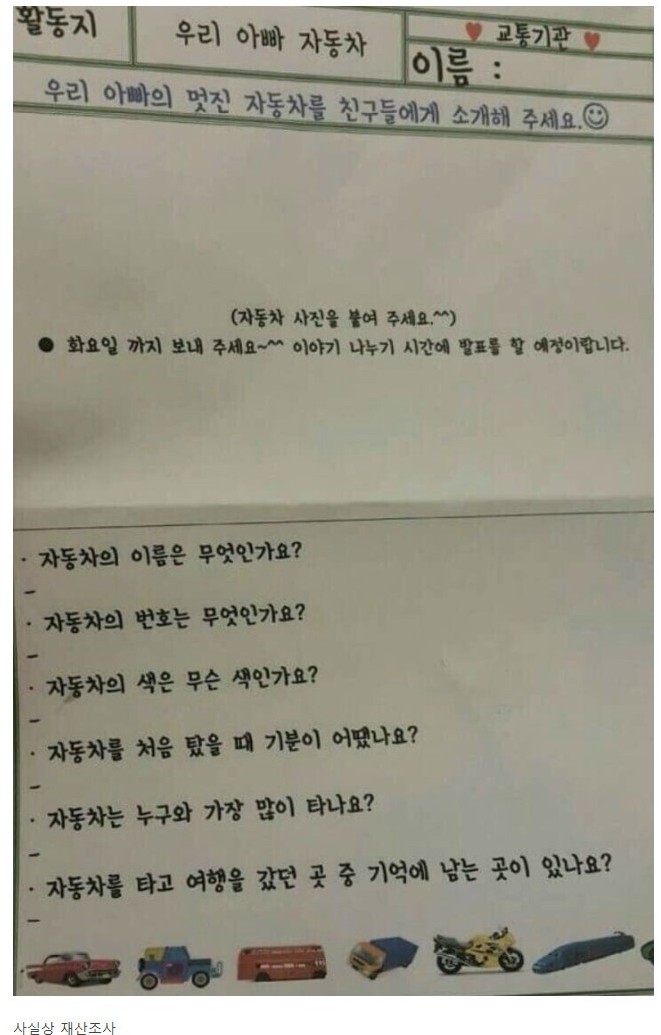 활동지
우리 아빠 자동차
♥ 교통기관 ♥
이름 :
우리 아빠의 멋진 자동차를 친구들에게 소개해 주세요.☺
(자동차 사진을 붙여 주세요.^^)
● 화요일 까지 보내 주세요~^^ 이야기 나누기 시간에 발표를 할 예정이랍니다.
· 자동차의 이름은 무엇인가요?
-
· 자동차의 번호는 무엇인가요?
-
· 자동차의 색은 무슨 색인가요?
-
· 자동차를 처음 탔을 때 기분이 어땠나요?
-
· 자동차는 누구와 가장 많이 타나요?
-
· 자동차를 타고 여행을 갔던 곳 중 기억에 남는 곳이 있나요?
-
사실상 재산조사